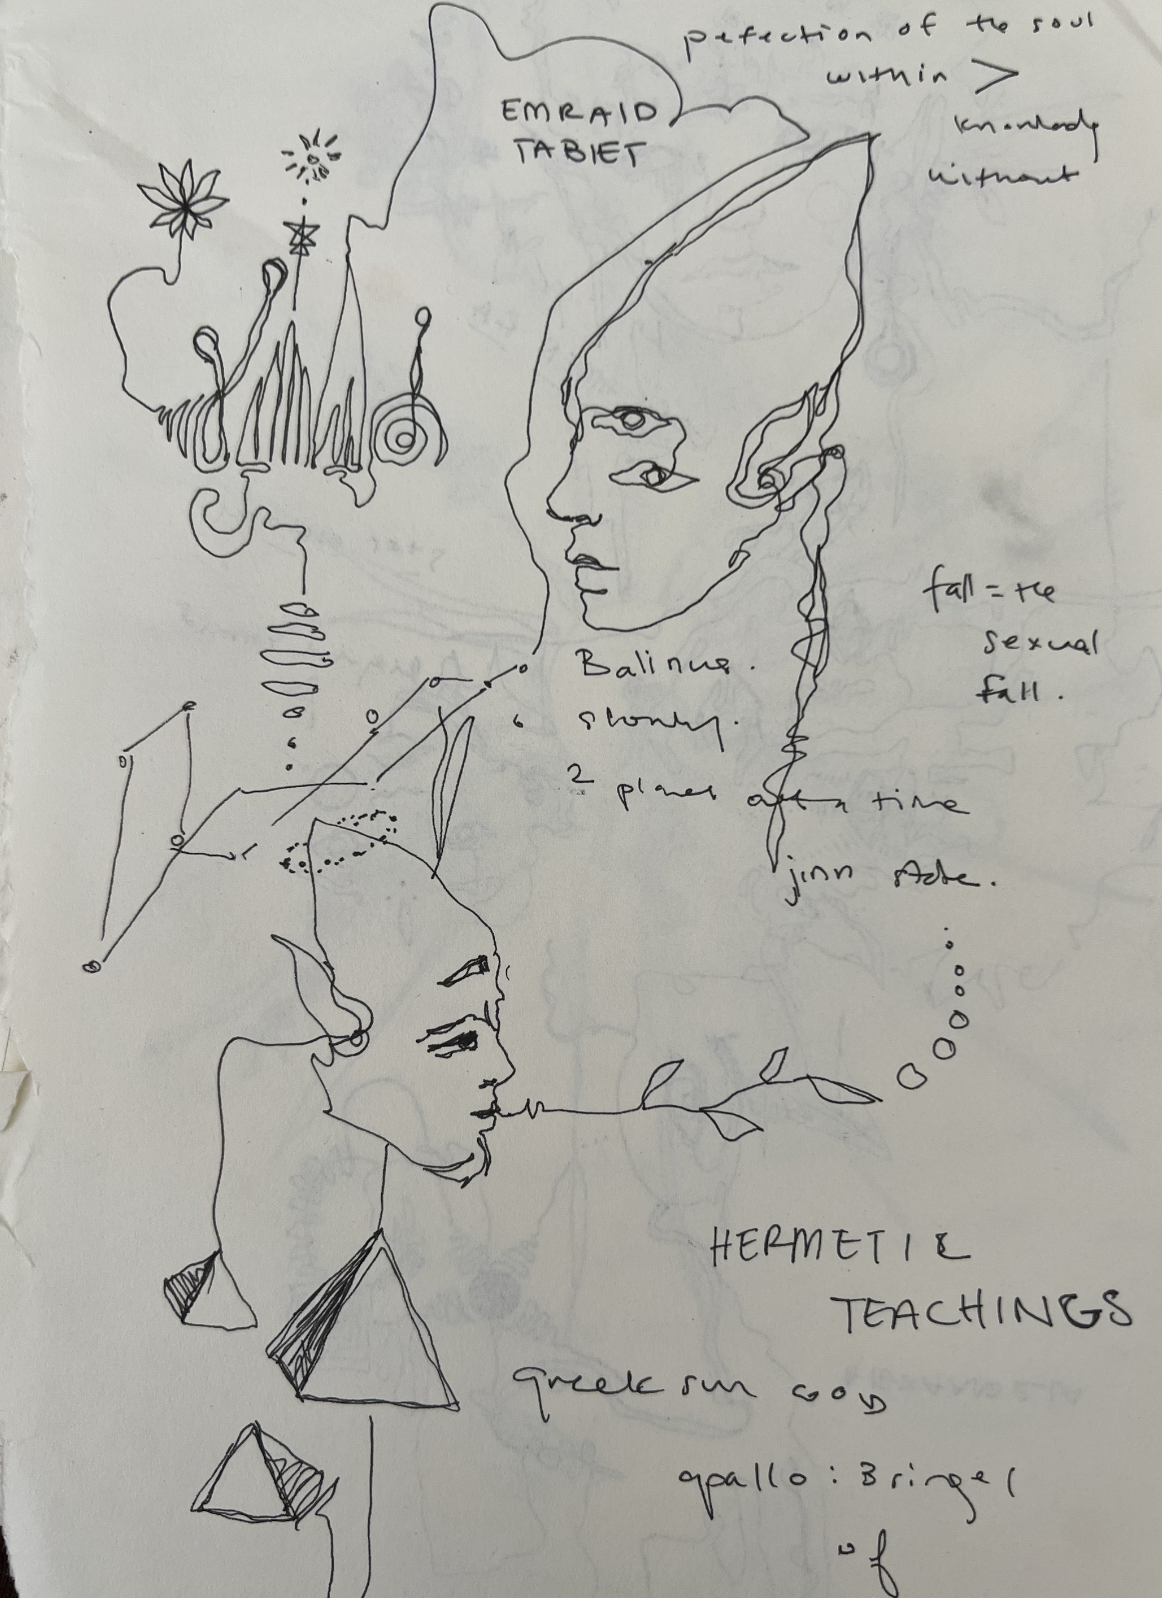 pefection of the soul
within >
knowledg
without
EMRALD
TABLET
fall = the
sexual
fall.
Balinus.
slowly.
2 planes at a time
jinn state.
HERMETIC
TEACHINGS
Greek sun GOD
apallo : Bringer
of